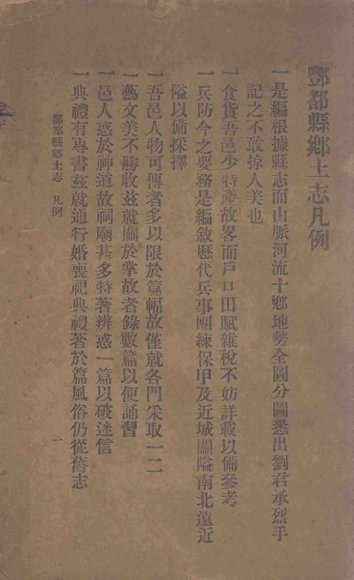 酆都縣鄉土志凡例
一是編根據縣志而山脈河流十鄉地勢全圖分圖悉出劉君承烈手
記之不敢掠人美也
一食貨吾邑少特產故畧而戶口田賦雜稅不妨詳載以備參考
一兵防今之要務是編敘歷代兵事團練保甲及近城關隘南北遠近
隘以備採擇
一吾邑人物可傳者多以限於篇幅故僅就各門采取一二
一藝文美不勝收茲就關於掌故者錄數篇以便誦習
一邑人惑於神道故祠廟甚多特著辨惑一篇以破迷信
一典禮有專書茲就通行婚喪祀典禮著於篇風俗仍從舊志
酆都縣鄉土志 凡例 一